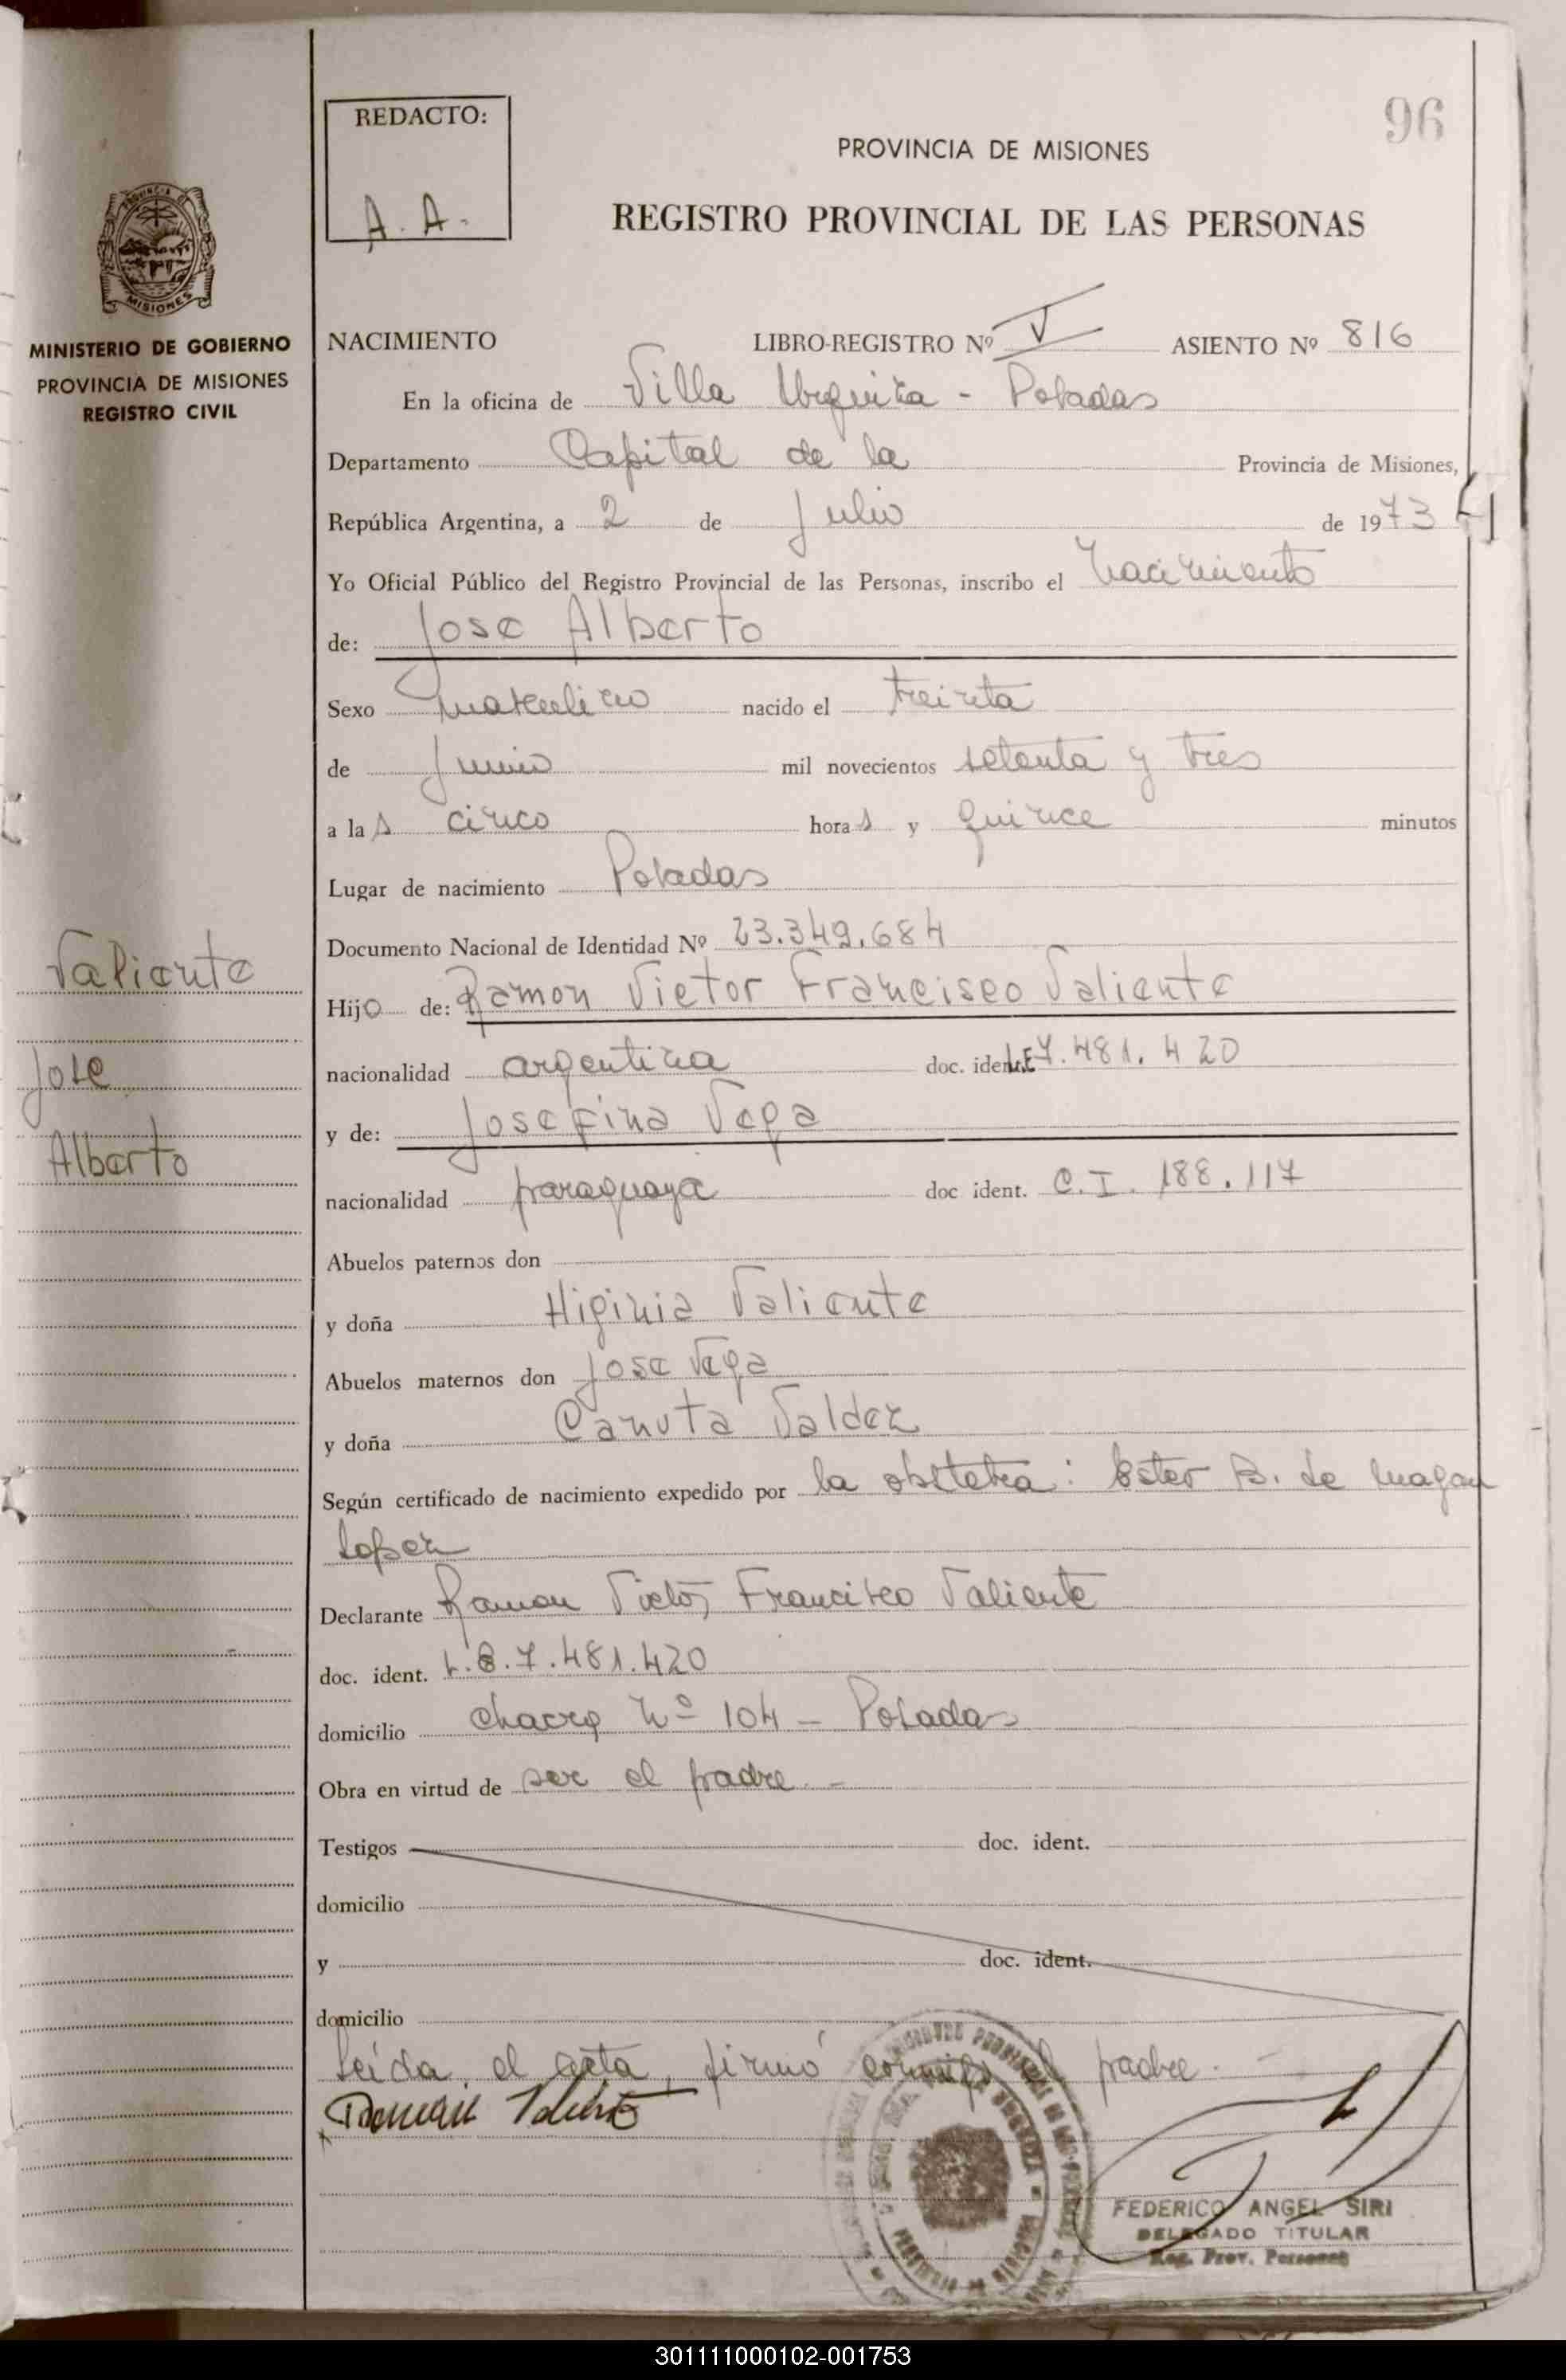 96
REDACTO:
A. A.
PROVINCIA DE MISIONES
REGISTRO PROVINCIAL DE LAS PERSONAS
PROVINCIA DE
MISIONES
MINISTERIO DE GOBIERNO
PROVINCIA DE MISIONES
REGISTRO CIVIL
NACIMIENTO LIBRO-REGISTRO Nº V ASIENTO Nº 816
En la oficina de Villa Urquiza - Posadas
Departamento Capital de la Provincia de Misiones,
República Argentina, a 2 de Julio de 1973
Yo Oficial Público del Registro Provincial de las Personas, inscribo el nacimiento
de: Jose Alberto
Sexo masculino nacido el treinta
de Junio mil novecientos setenta y tres
a las cinco horas y quince minutos
Lugar de nacimiento Posadas
Documento Nacional de Identidad Nº 23.349.684
Valiente
Jose
Alberto
Hijo de: Ramon Victor Francisco Valiente
nacionalidad argentina doc. ident. L.E 7.481.420
y de: Josefina Vega
nacionalidad paraguaya doc ident. C.I. 188.117
Abuelos paternos don
y doña Higinia Valiente
Abuelos maternos don Jose Vega
y doña Canuta Valdez
Según certificado de nacimiento expedido por la obstetra: Ester B. de
Lopez
Declarante Ramon Victor Francisco Valiente
doc. ident. L.E. 7.481.420
domicilio chacra Nº 104 - Posadas
Obra en virtud de ser el padre. -
Testigos doc. ident.
domicilio
y doc. ident.
domicilio
Leida el acta, firmó conmigo el padre. -
Ramon Valiente
FEDERICO ANGEL SIRI
DELEGADO TITULAR
Reg. Prov. Personas
301111000102-001753